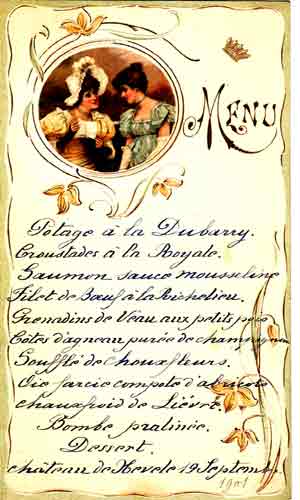 MENU
Potage à la Dubarry.
Croustades à la Royale.
Saumon sauce mousseline
Filet de Bœuf à la Richelieu.
Grenadins de Veau aux petits pois
Côtes d'agneau purée de champignon
Soufflé de chouxfleurs.
Oie farcie compote d'abricots
chaudfroid de Lièvre.
Bombe pralinée.
Dessert.
château de 19 Septemb.
1901